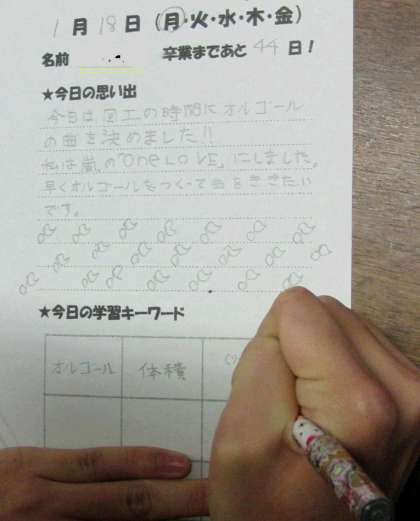 1月18日(月・火・水・木・金)
名前 卒業まであと44日!
★今日の思い出
今日は図工の時間にオルゴール
の曲を決めました!!
私は嵐の「One LOVE」にしました。
早くオルゴールをつくって音をききたい
です。
★今日の学習キーワード
オルゴール 体積